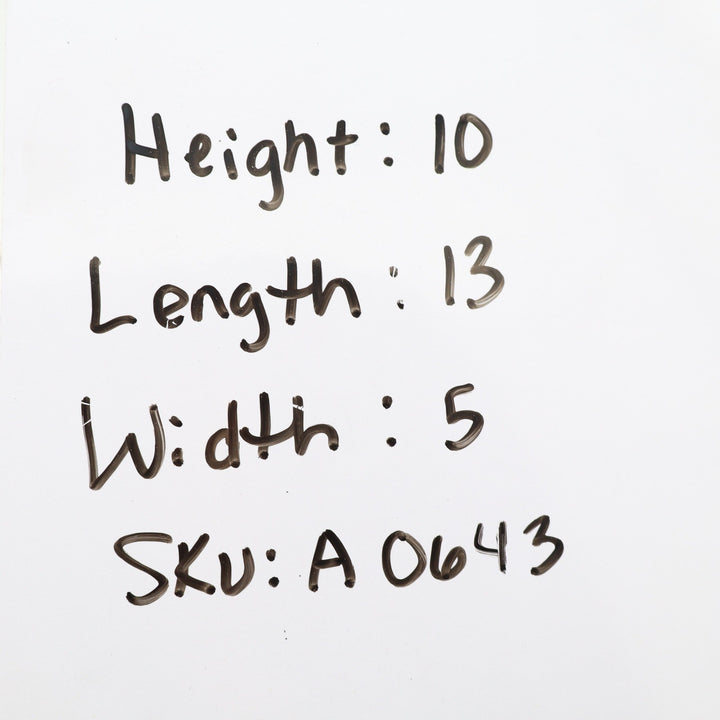 Height: 10
Length: 13
Width: 5
SKU: A0643